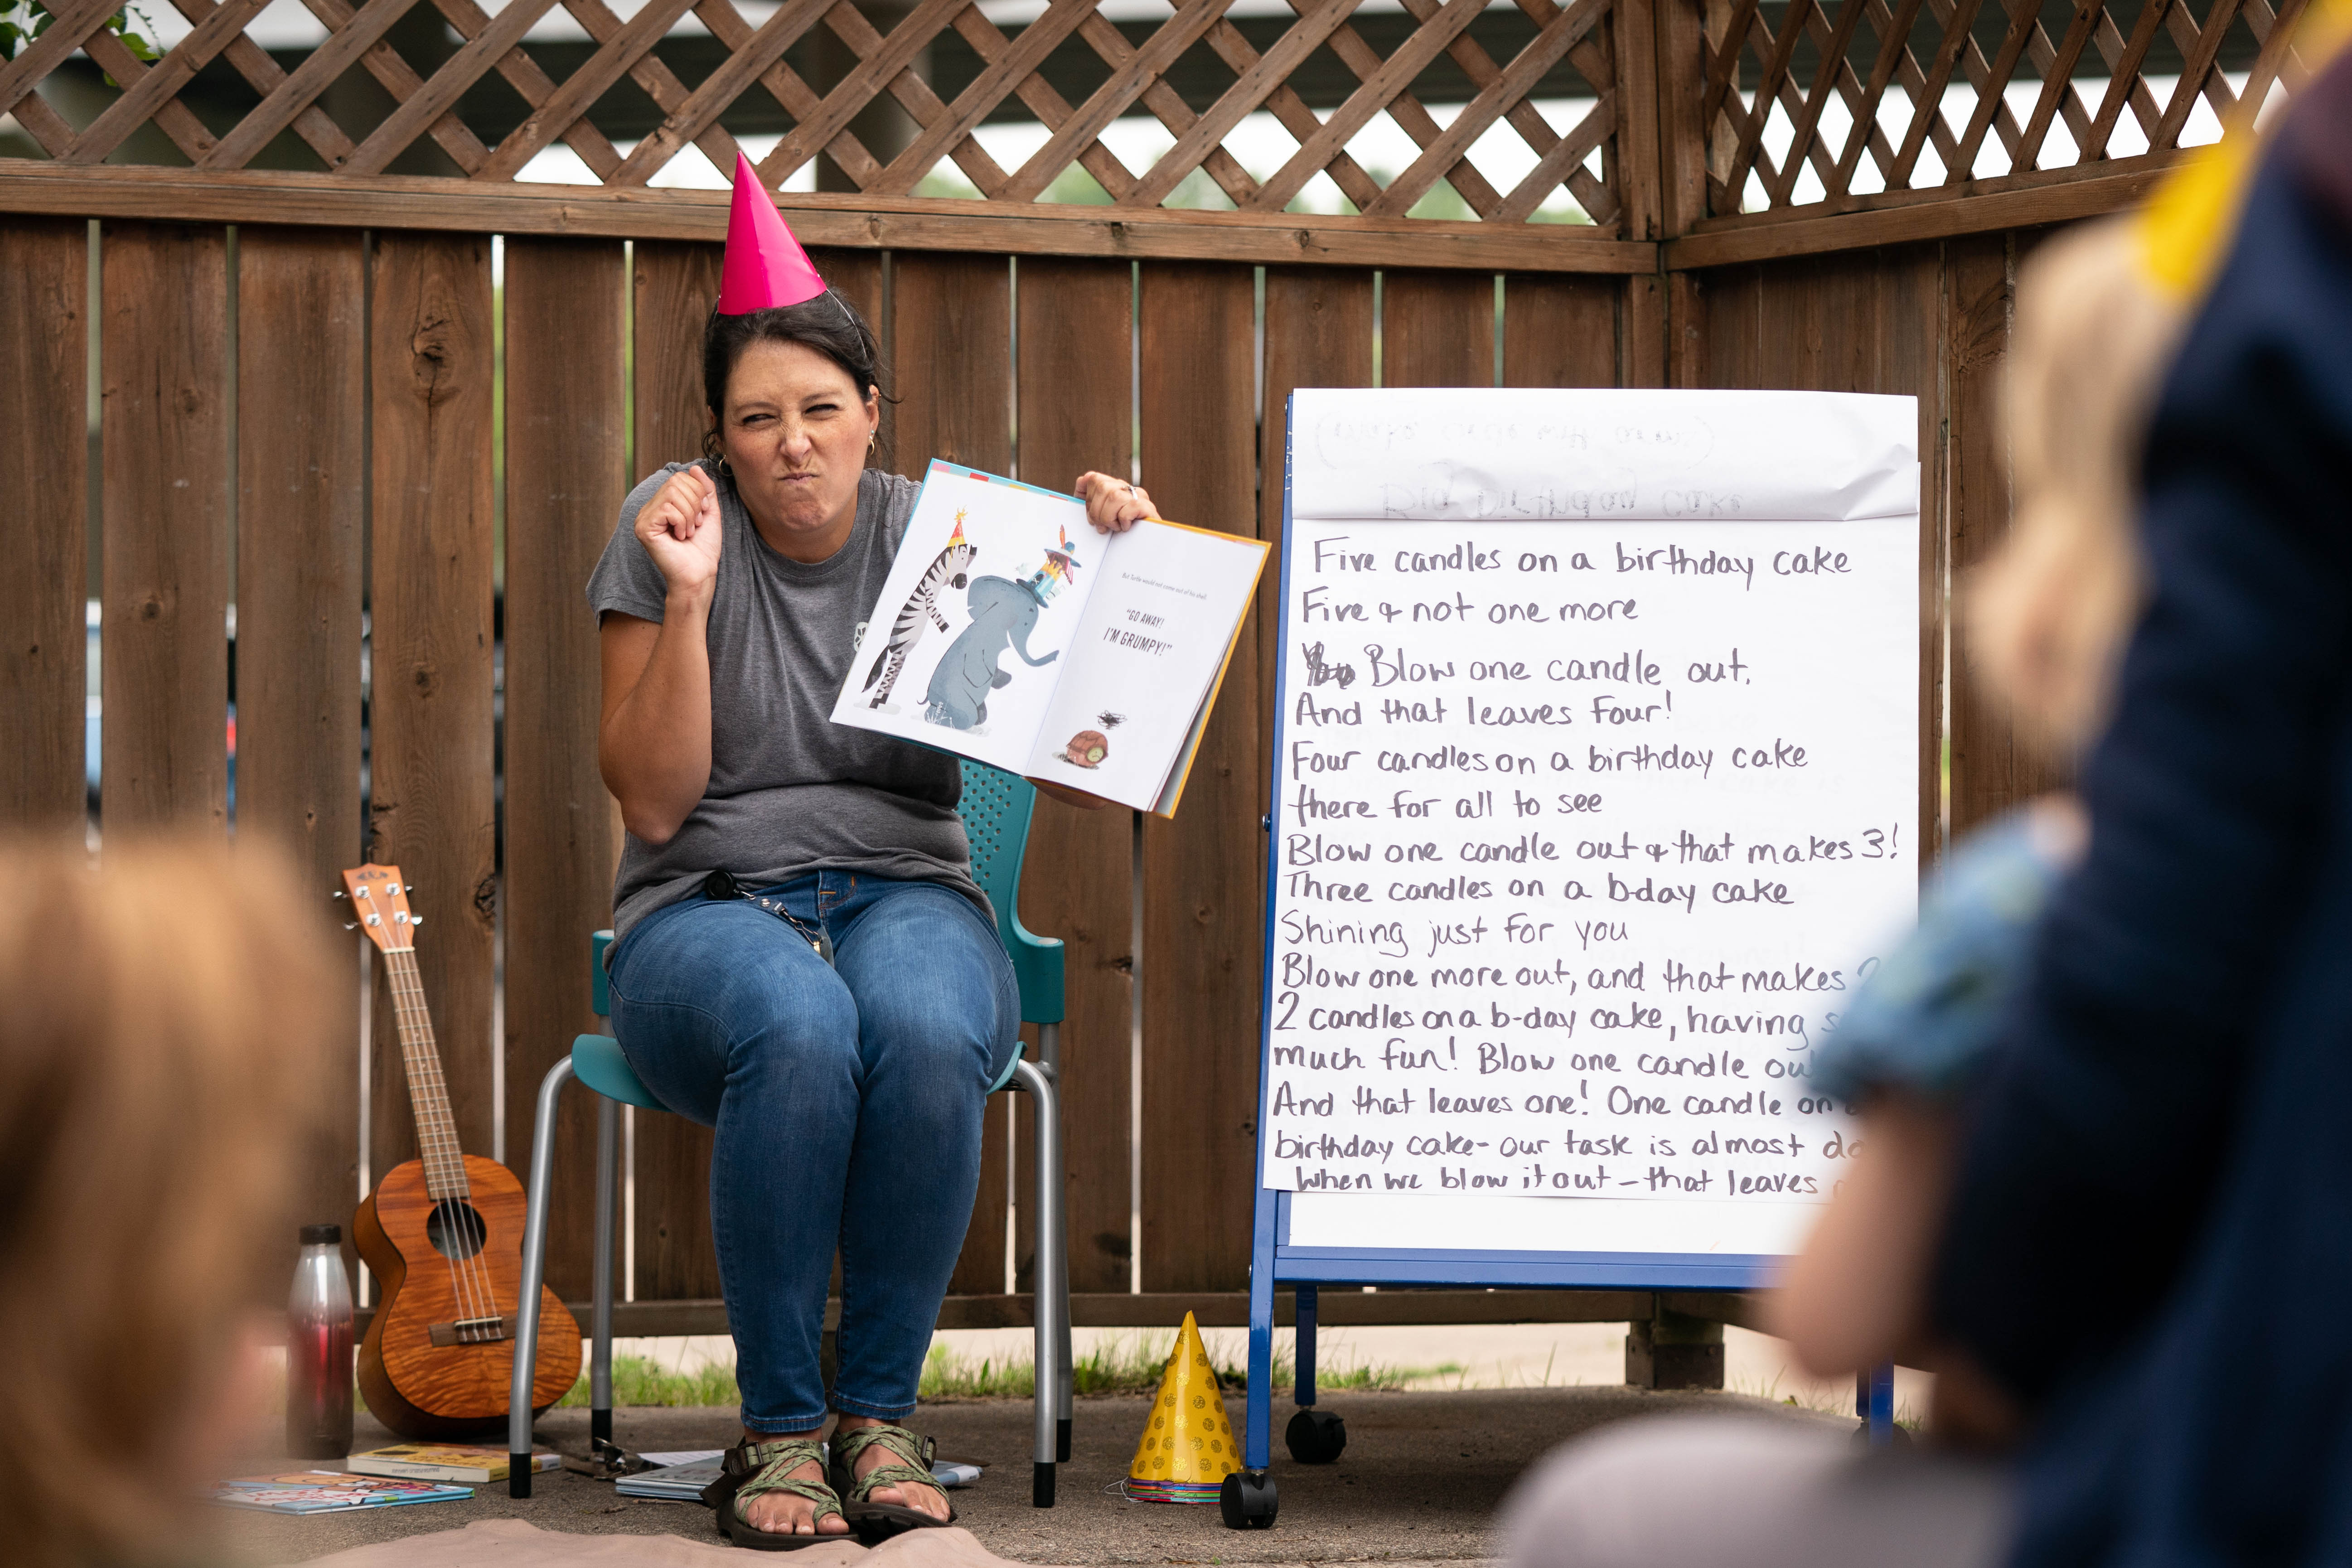 But Turtle would not come out of his shell.
"GO AWAY!
I'M GRUMPY!"
cake
Five candles on a birthday cake
Five & not one more
Blow one candle out.
And that leaves four!
Four candles on a birthday cake
there for all to see
Blow one candle out & that makes 3!
Three candles on a b-day cake
Shining just for you
Blow one more out, and that makes
2 candles on a b-day cake, having
much fun! Blow one candle
And that leaves one! One candle on
birthday cake- our task is almost
When we blow it out - that leaves